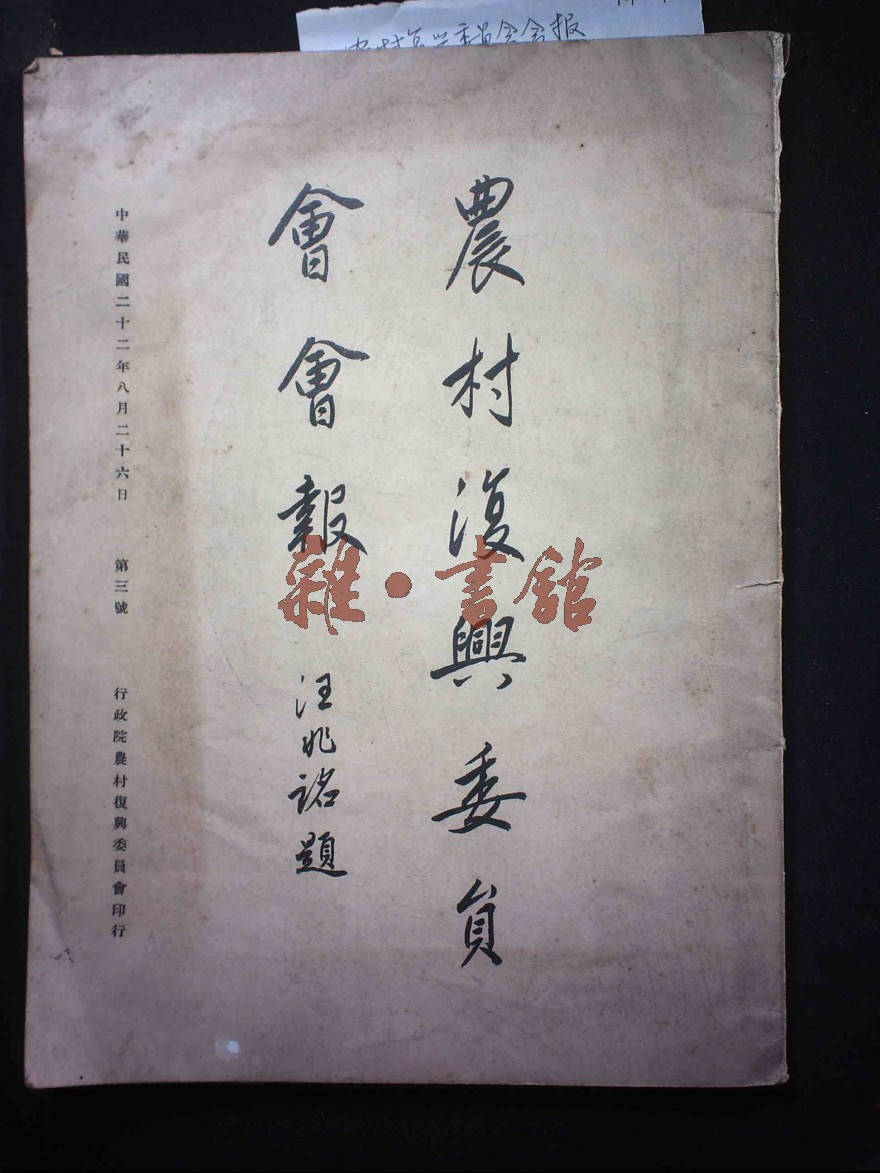 农村复兴委员会会报
農村復興委員
會會報
汪兆銘題
中華民國二十二年八月二十六日 第三號 行政院農村復興委員會印行
雜·書館